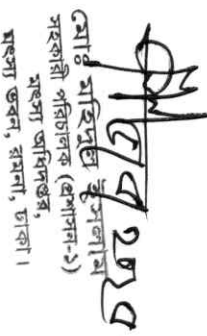 মোঃ মাহিদুল ইসলাম
সহকারী পরিচালক (প্রশাসন-১)
মৎস্য অধিদপ্তর,
মৎস্য ভবন, রমনা, ঢাকা।